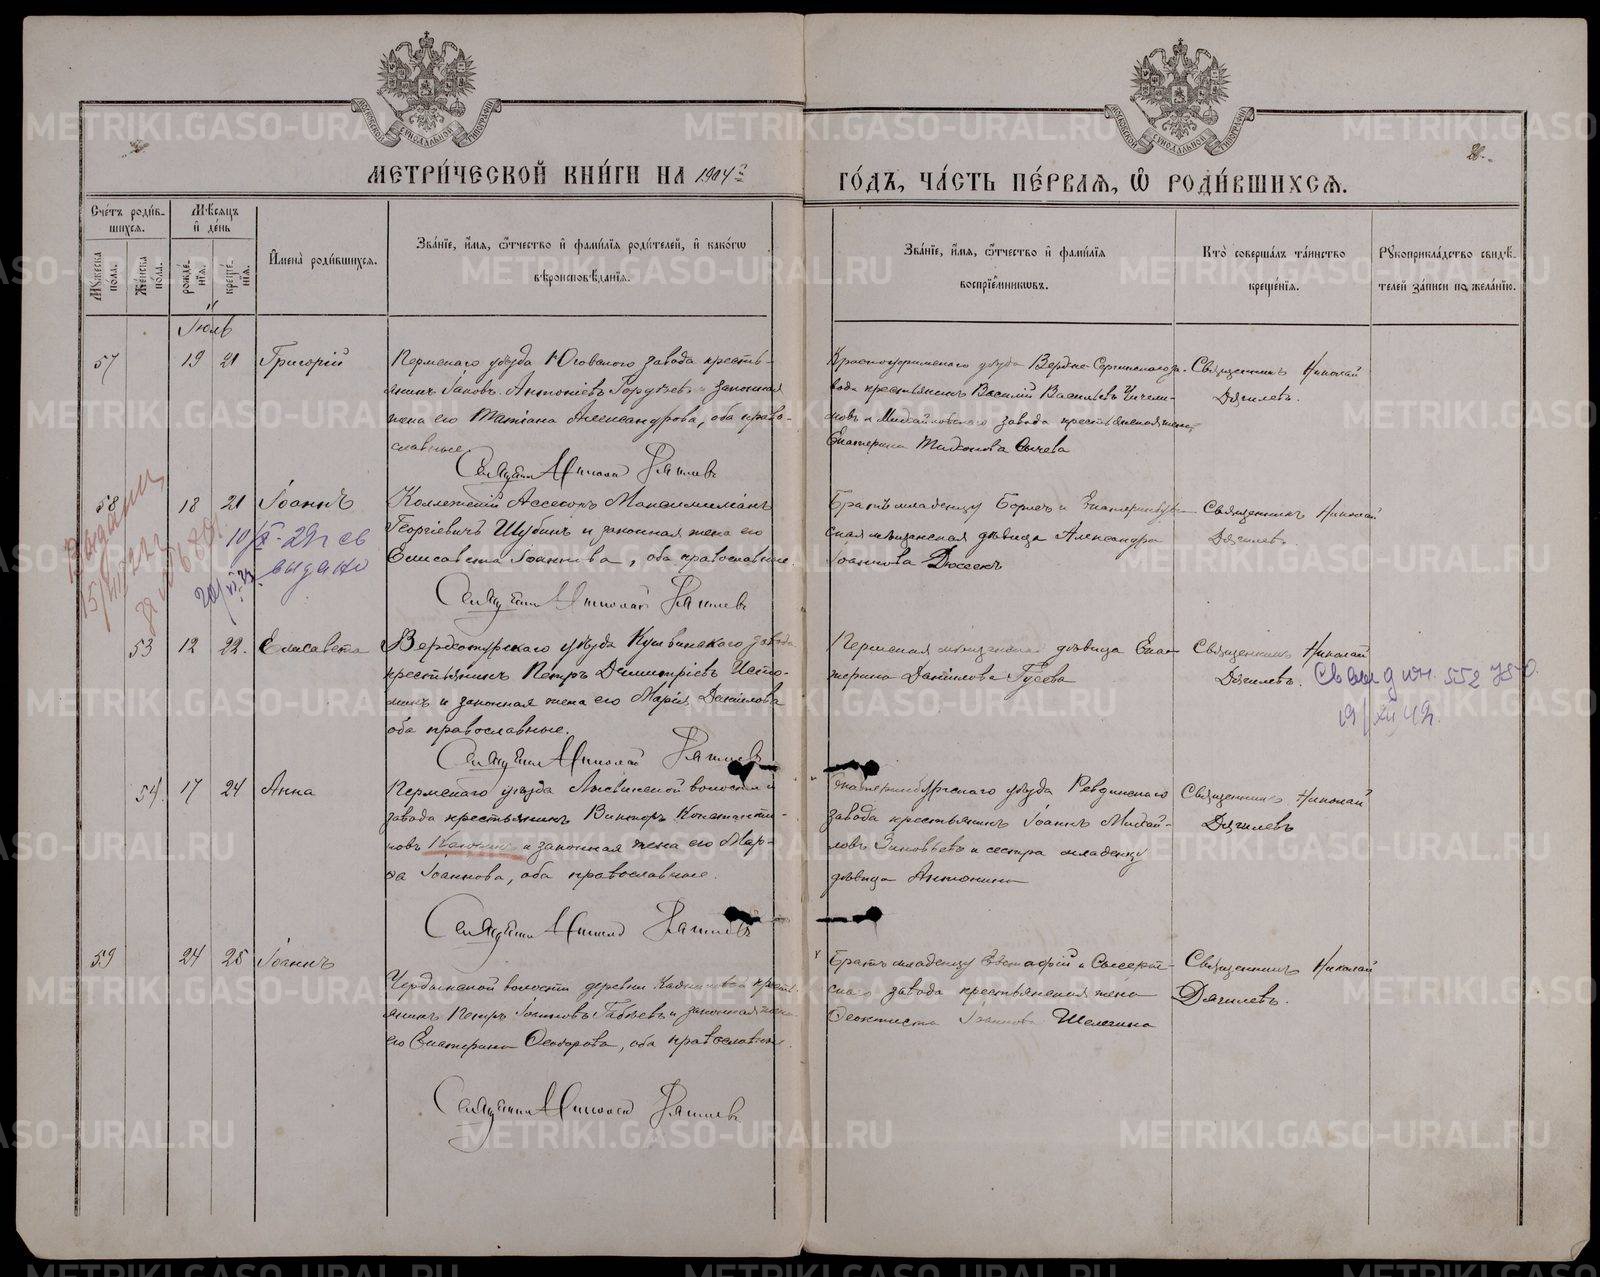 МЕТРИ́ЧЕСКОЙ КНИ́ГИ НА 1904 г.
ГО́ДЪ, ЧА́СТЬ ПЕ́РВАѦ, Ѡ҆ РОДИ́ВШИХСѦ.
28.
Сче́тъ роди́в-
шихся.
Мꙋ́жеска по́ла.
Же́нска по́ла.
Мѣ́сяцъ и҆ де́нь
рожде́нїя.
креще́нїя.
И҆мена̀ роди́вшихся.
Зва́нїе, и҆́мя, ѻ҆́тчество и҆ фами́лїя роди́телей, и҆ како́гѡ
вѣроисповѣ́данїя.
Зва́нїе, и҆́мя, ѻ҆́тчество и҆ фами́лїя
воспрїе́мникѡвъ.
Кто̀ соверша́лъ та́инство
креще́нїя.
Рꙋкоприкла́дство свидѣ́-
телей за́писи по жела́нїю.
Іюль
57 19 21 Григорій
Пермскаго уѣзда Юговскаго завода кресть-
янинъ Іаковъ Антоніевъ и законная
жена его Татіана Александрова, оба право-
славные.
Священникъ Николай Дягилевъ
Красноуфимскаго уѣзда Верхне-Сергинскаго за-
вода крестьянинъ Василій Васильевъ
и Михайловскаго завода крестьянская жена
Екатерина Тихонова Сычева
Священникъ Николай
Дягилевъ.
58 18 21 Іоаннъ
Коллежскій Ассесоръ Максимиліанъ
Георгіевичъ Шубинъ и законная жена его
Елисавета Іоаннова, оба православные.
Священникъ Николай Дягилевъ
Братъ младенцу Борисъ и Екатеринбург-
ская мѣщанская дѣвица Александра
Іоаннова
Священникъ Николай
Дягилевъ.
выдано
53 12 22 Елисавета
Верхотурскаго уѣзда Кушвинскаго завода
крестьянинъ Петръ Димитріевъ Исто-
минъ и законная жена его Марія Данілова
оба православные.
Священникъ Николай Дягилевъ
Пермская мѣщанская дѣвица Ека-
терина Данілова Гусева
Священникъ Николай
Дягилевъ.
54 17 24 Анна
Пермскаго уѣзда Лысвенской волости и
завода крестьянинъ Викторъ Константи-
новъ и законная жена его Мар-
ѳа Іоаннова, оба православные.
Священникъ Николай Дягилевъ
Екатеринбургскаго уѣзда Ревдинскаго
завода крестьянинъ Іоаннъ Михай-
ловъ Зиновьевъ и сестра младенцу
дѣвица Антонина
Священникъ Николай
Дягилевъ
59 24 25 Іоаннъ
Чердынской волости деревни крест-
янинъ Петръ Іоанновъ и законная жена
его Екатерина Ѳеодорова, оба православные.
Священникъ Николай Дягилевъ
Братъ младенцу Евстафій и Сысерт-
скаго завода крестьянская жена
Ѳеоктиста Іоаннова Шелегина
Священникъ Николай
Дягилевъ.
METRIKI.GASO-URAL.RU